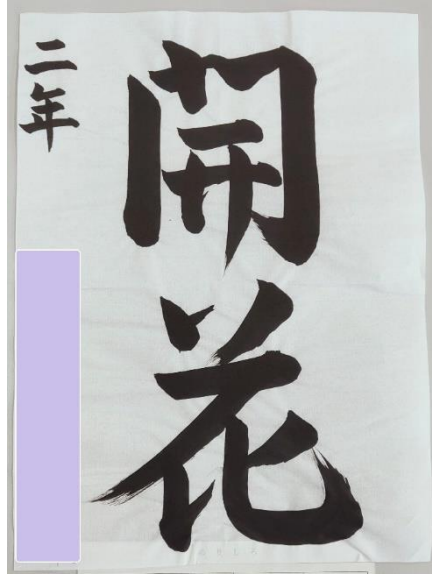 開花
二年